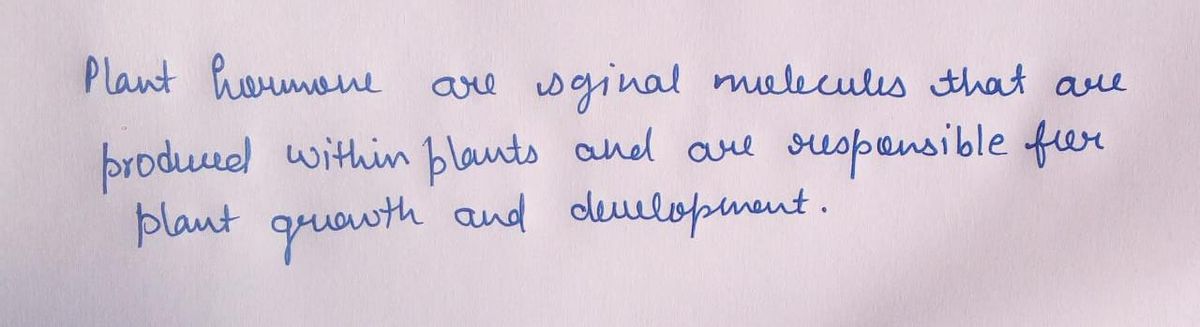 Plant hormone are sginal molecules that are
produced within plants and are responsible for
plant growth and development.